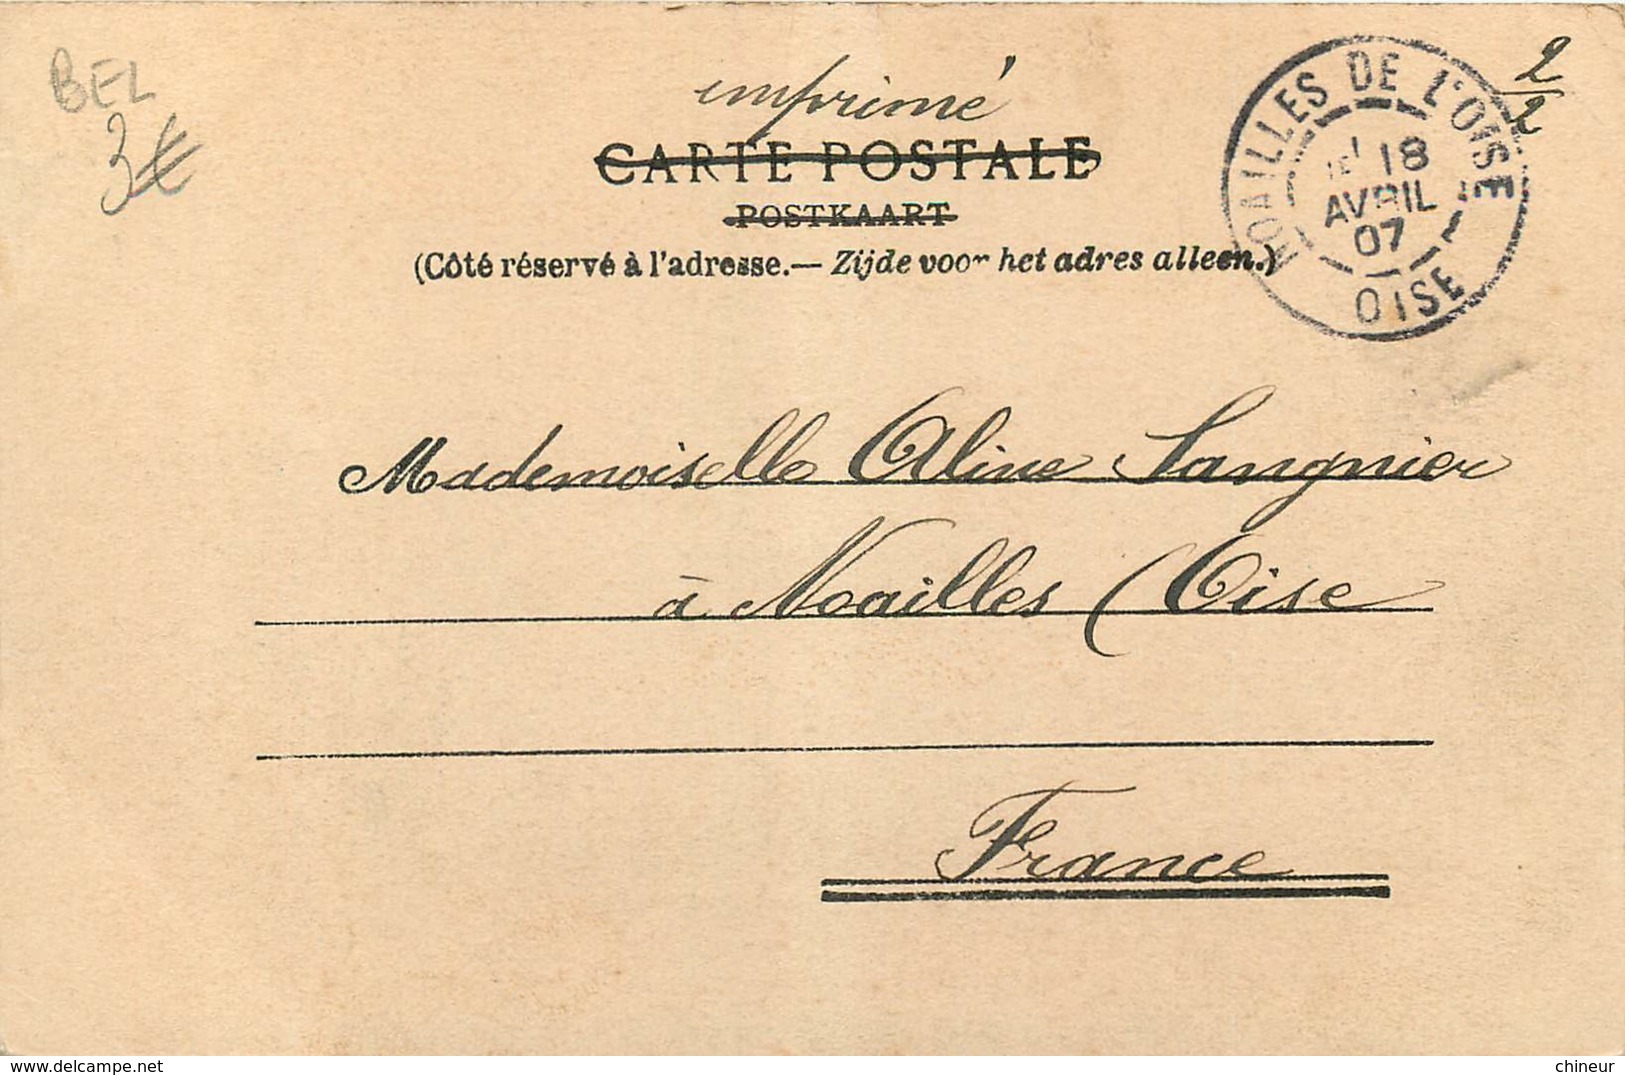 BEL
3€
imprimé
2/2
CARTE POSTALE
POSTKAART
(Côté réservé à l'adresse.— Zijde voor het adres alleen.)
NOAILLES DE L'OISE
1E 18
AVRIL
07
OISE
Mademoiselle Aline Sangnier
à Noailles (Oise
France
delcampe.net
chineur